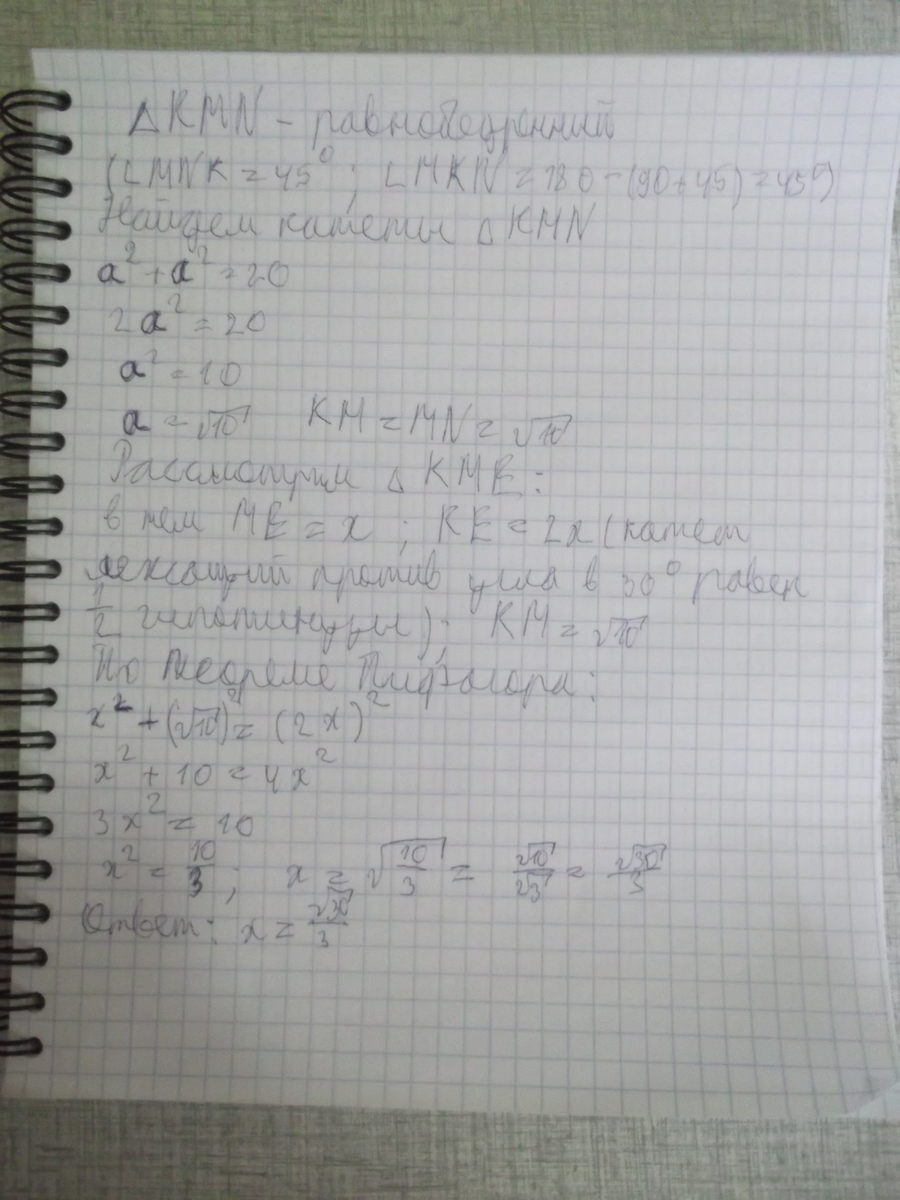 △KMN – равнобедренний
(∠MNK = 45°; ∠MKN = 180 – (90+45) = 45°)
Найдем катеты △KMN
a² + a² = 20
2a² = 20
a² = 10
a = √10 KM = MN = √10
Рассмотрим △KME:
в нем ME = x; KE = 2x (катет
лежащий против угла в 30° равен
1/2 гипотинузы); KM = √10
По теореме Пифагора:
x² + (√10)² = (2x)²
x² + 10 = 4x²
3x² = 10
x² = 10/3; x = √(10/3) = √10/√3 = √30/3
Ответ: x = √30/3